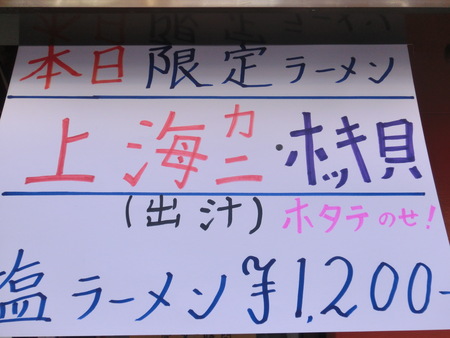 本日限定ラーメン
上海カニ・ホッキ貝
(出汁) ホタテのせ!
塩ラーメン ¥1,200-